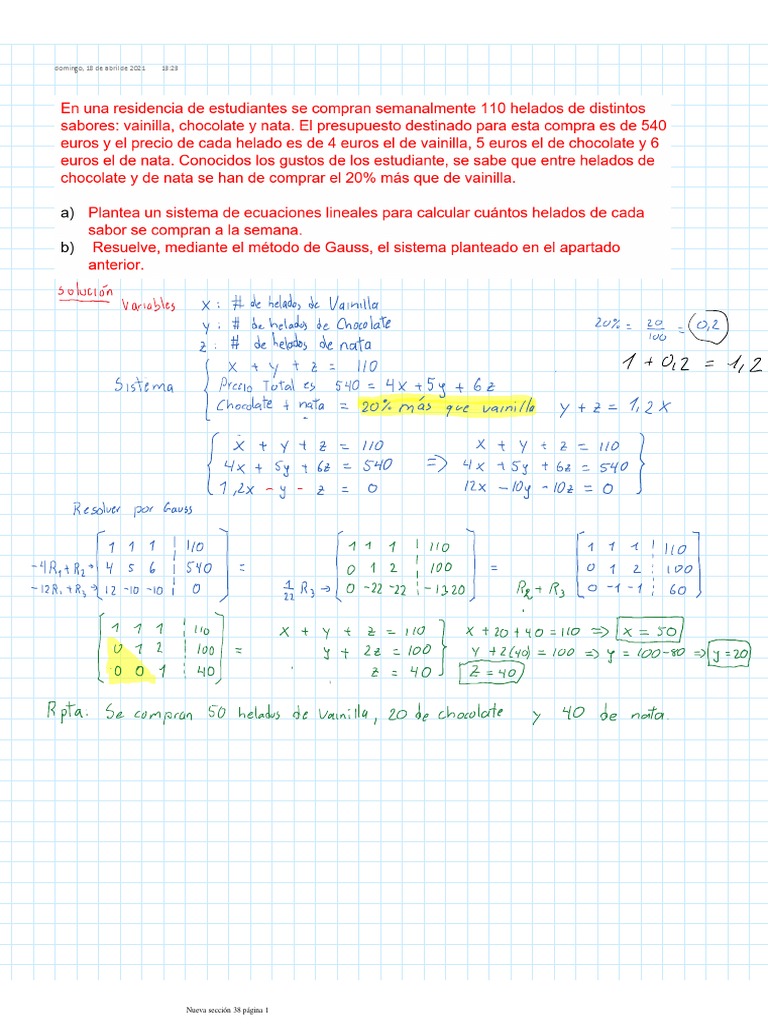 domingo, 18 de abril de 2021 13:23
En una residencia de estudiantes se compran semanalmente 110 helados de distintos
sabores: vainilla, chocolate y nata. El presupuesto destinado para esta compra es de 540
euros y el precio de cada helado es de 4 euros el de vainilla, 5 euros el de chocolate y 6
euros el de nata. Conocidos los gustos de los estudiante, se sabe que entre helados de
chocolate y de nata se han de comprar el 20% más que de vainilla.
a) Plantea un sistema de ecuaciones lineales para calcular cuántos helados de cada
sabor se compran a la semana.
b) Resuelve, mediante el método de Gauss, el sistema planteado en el apartado
anterior.
Solución
Variables x: # de helados de Vainilla
y: # de helados de Chocolate
z: # de helados de nata
20% = 20/100 = 0,2
1 + 0,2 = 1,2
Sistema { x + y + z = 110
Precio Total es 540 = 4x + 5y + 6z
Chocolate + nata = 20% más que vainilla y + z = 1,2x
{ x + y + z = 110 x + y + z = 110 }
4x + 5y + 6z = 540 => 4x + 5y + 6z = 540
1,2x - y - z = 0 12x - 10y - 10z = 0
Resolver por Gauss
[ 1 1 1 ¦ 110 ] [ 1 1 1 ¦ 110 ] [ 1 1 1 ¦ 110 ]
-4R1 + R2 → 4 5 6 ¦ 540 = 0 1 2 ¦ 100 = 0 1 2 ¦ 100
-12R1 + R3 → 12 -10 -10 ¦ 0 1/22 R3 → 0 -22 -22 ¦ -1320 R2 + R3 0 -1 -1 ¦ 60
[ 1 1 1 ¦ 110 ] x + y + z = 110 } x + 20 + 40 = 110 => x = 50
0 1 2 ¦ 100 = y + 2z = 100 y + 2(40) = 100 => y = 100-80 => y = 20
0 0 1 ¦ 40 z = 40 z = 40
Rpta. Se compran 50 helados de vainilla, 20 de chocolate y 40 de nata.
Nueva sección 38 página 1